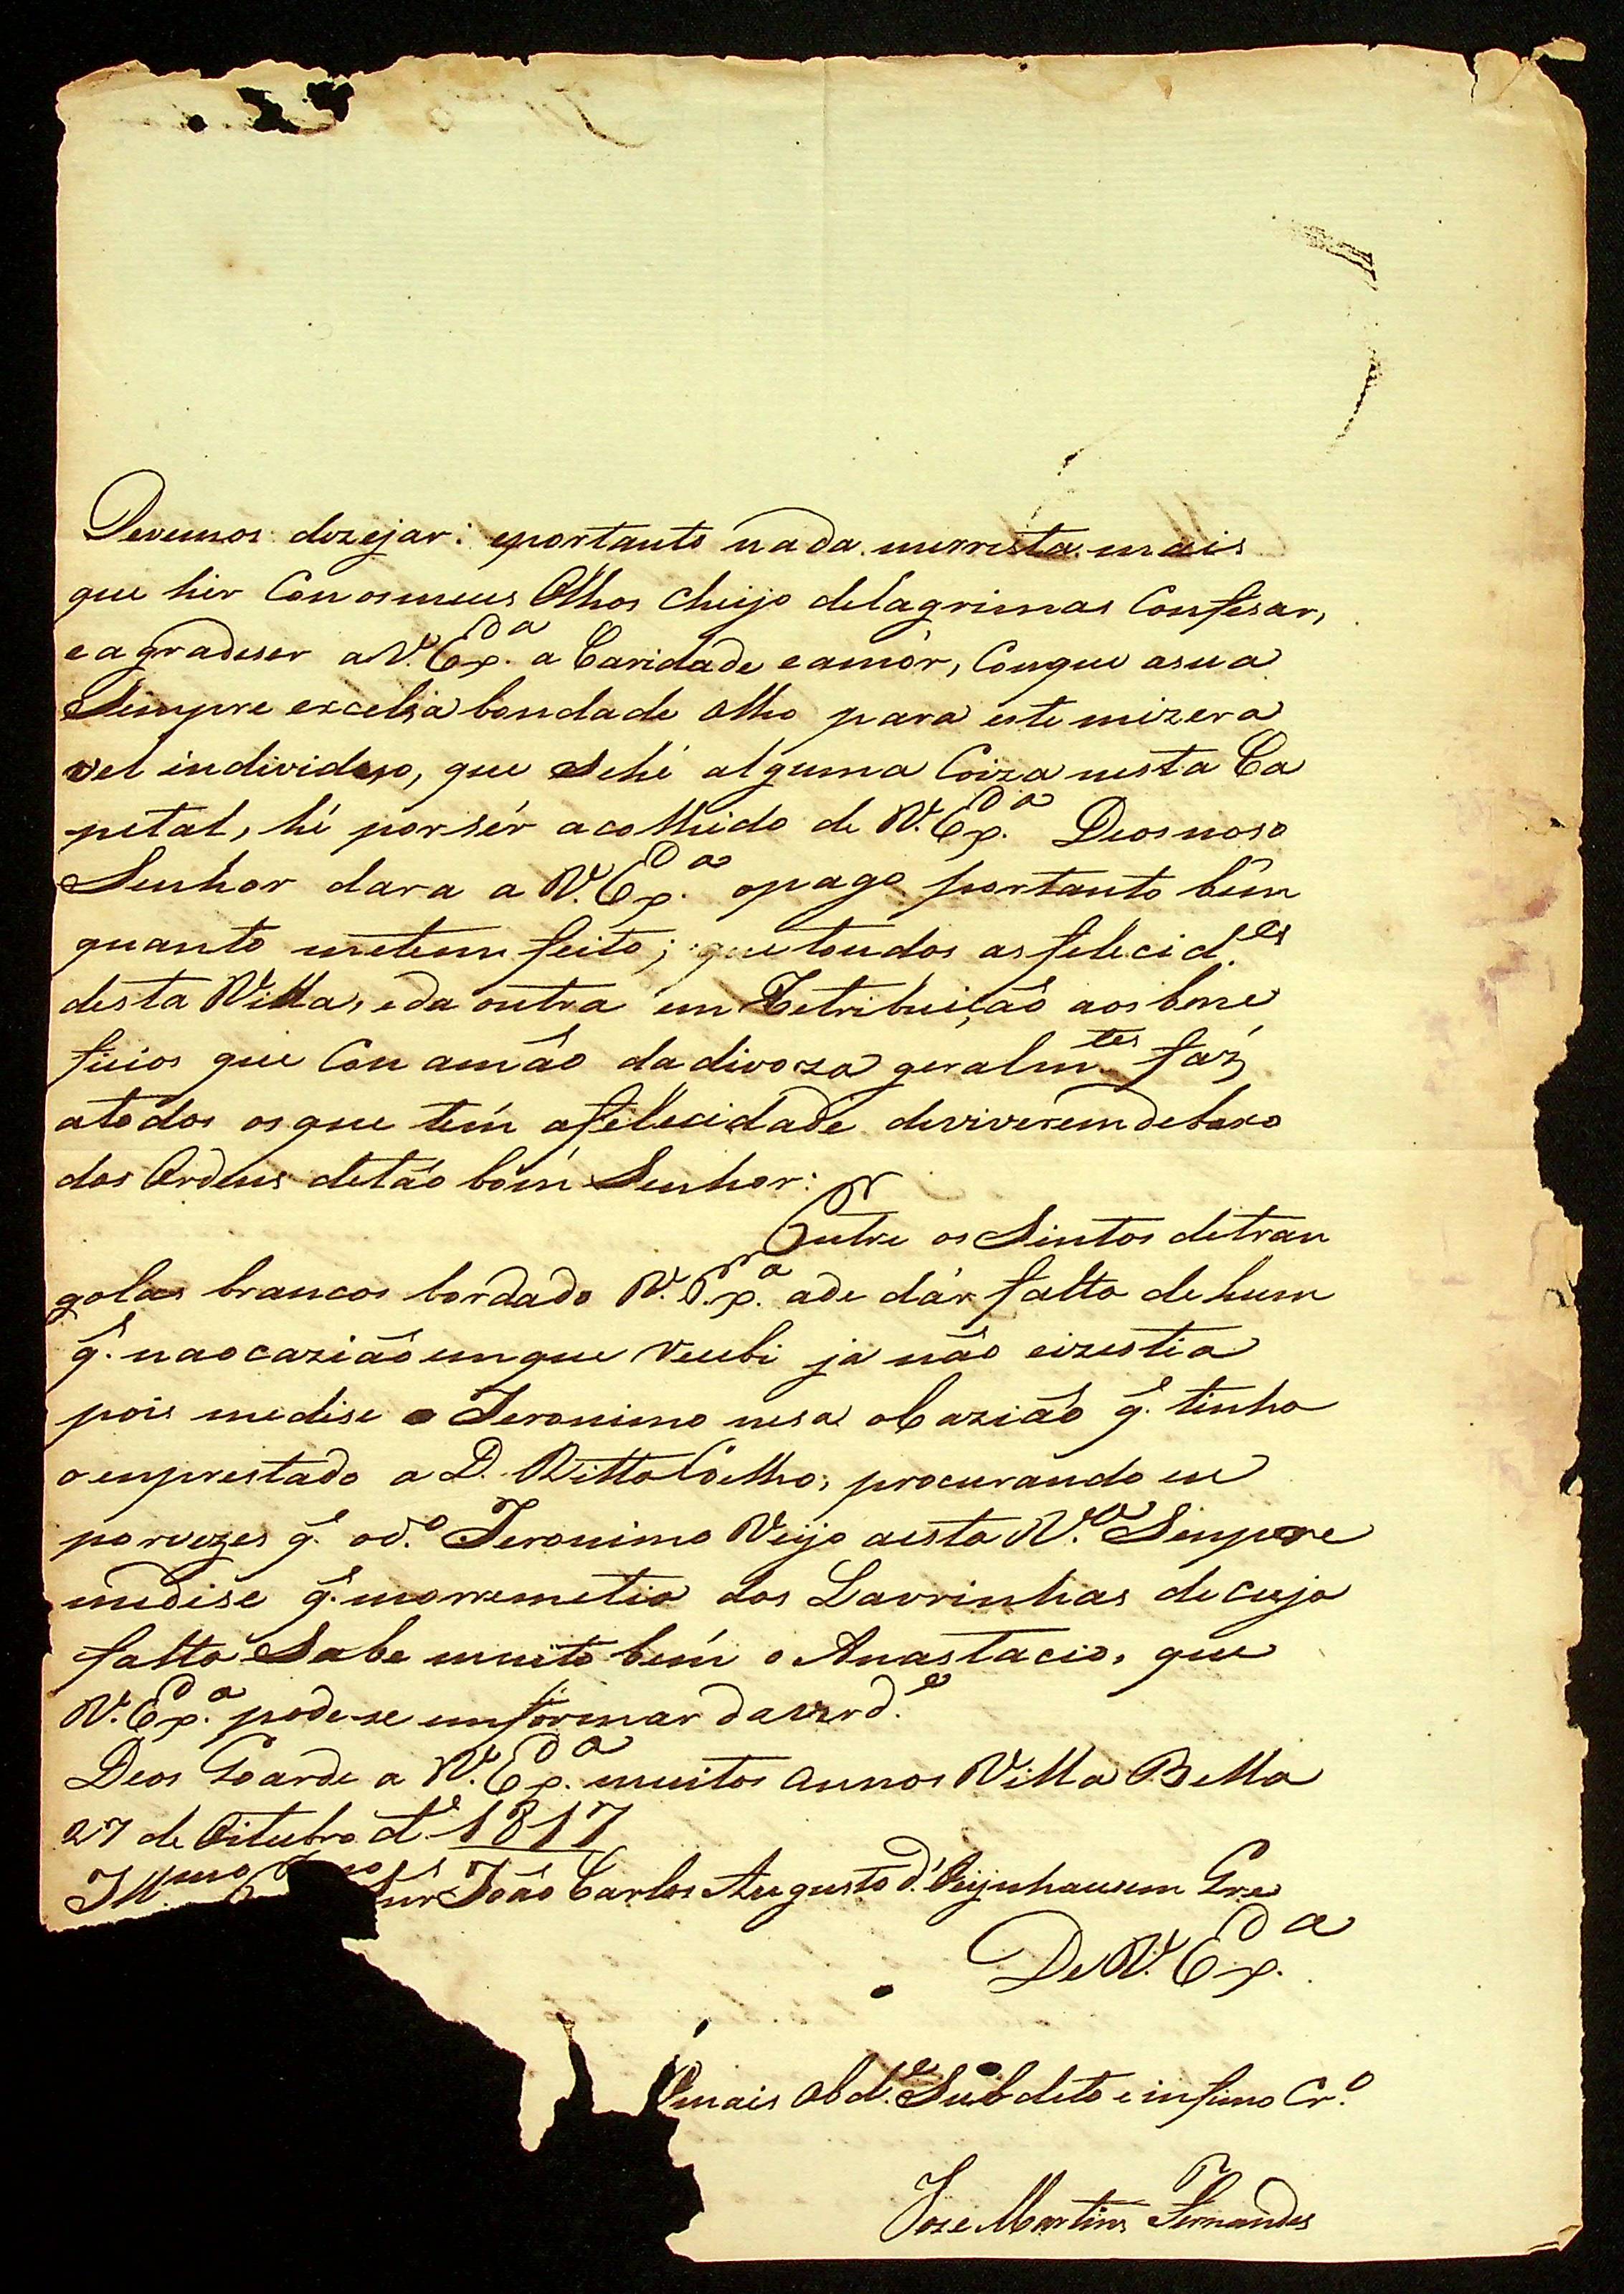 Devemos dezejar: eportanto nada merresta mais
que hir Con osmeus Olhos Cheijo delagrimas Confesar,
e agradeser aV. Exª. a Caridade eamòr, Conque asua
Sempre excelsa bondade olho para este mizera
vel individuo, que Sehé alguma Coiza nesta Ca
petal, hé porsèr acolhido de V. Exª. Deosnoso
Senhor dara a V. Exª. opago portanto bêm
quanto metem feito; que toudos asfelecid.es
desta Villa, eda outra em Retribuição aosbene
ficios que Con amão dadivoza geralm.tes fáz
atodos osque têm afelecidade deviverem debaxo
das Ordens detáo bóm Senhor:
Entre os Sintos detran
golas brancos bordado V. Exª. ade dár falta de hum
q̃. naocazião emque recebi já não eizestia
pois medise o Jeronimo nesa oCazião q̃. tinha
o enprestado a D. Ritta Coelho, procurando eu
porvezes q̃. od.º Jeronimo Veijo aesta V.ª Senpre
medise q̃. morremetia das Lavrinhas decuja
falta Sabe muito bem o Anastacio, que
V. Exª. podese enformar daverd.e
Deos Goarde a V. Exª. muitos annos Villa Bella
27 de Oitubro d.e 1817
Ill.mo Snr João Carlos Augusto d'Oeijnhausem Gre
De V. Exª.
Omais Obd.e Subdeto e infimo Cr.º
Joze Martins Fernandes